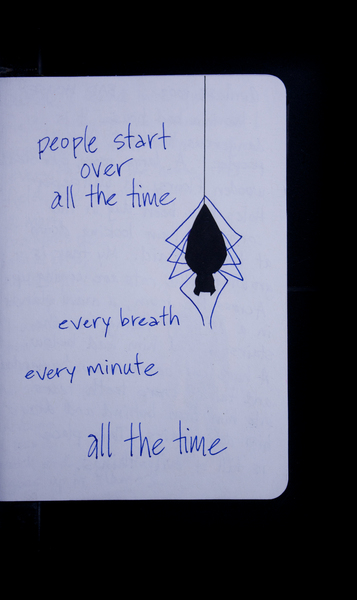 people start
over
all the time
every breath
every minute
all the time